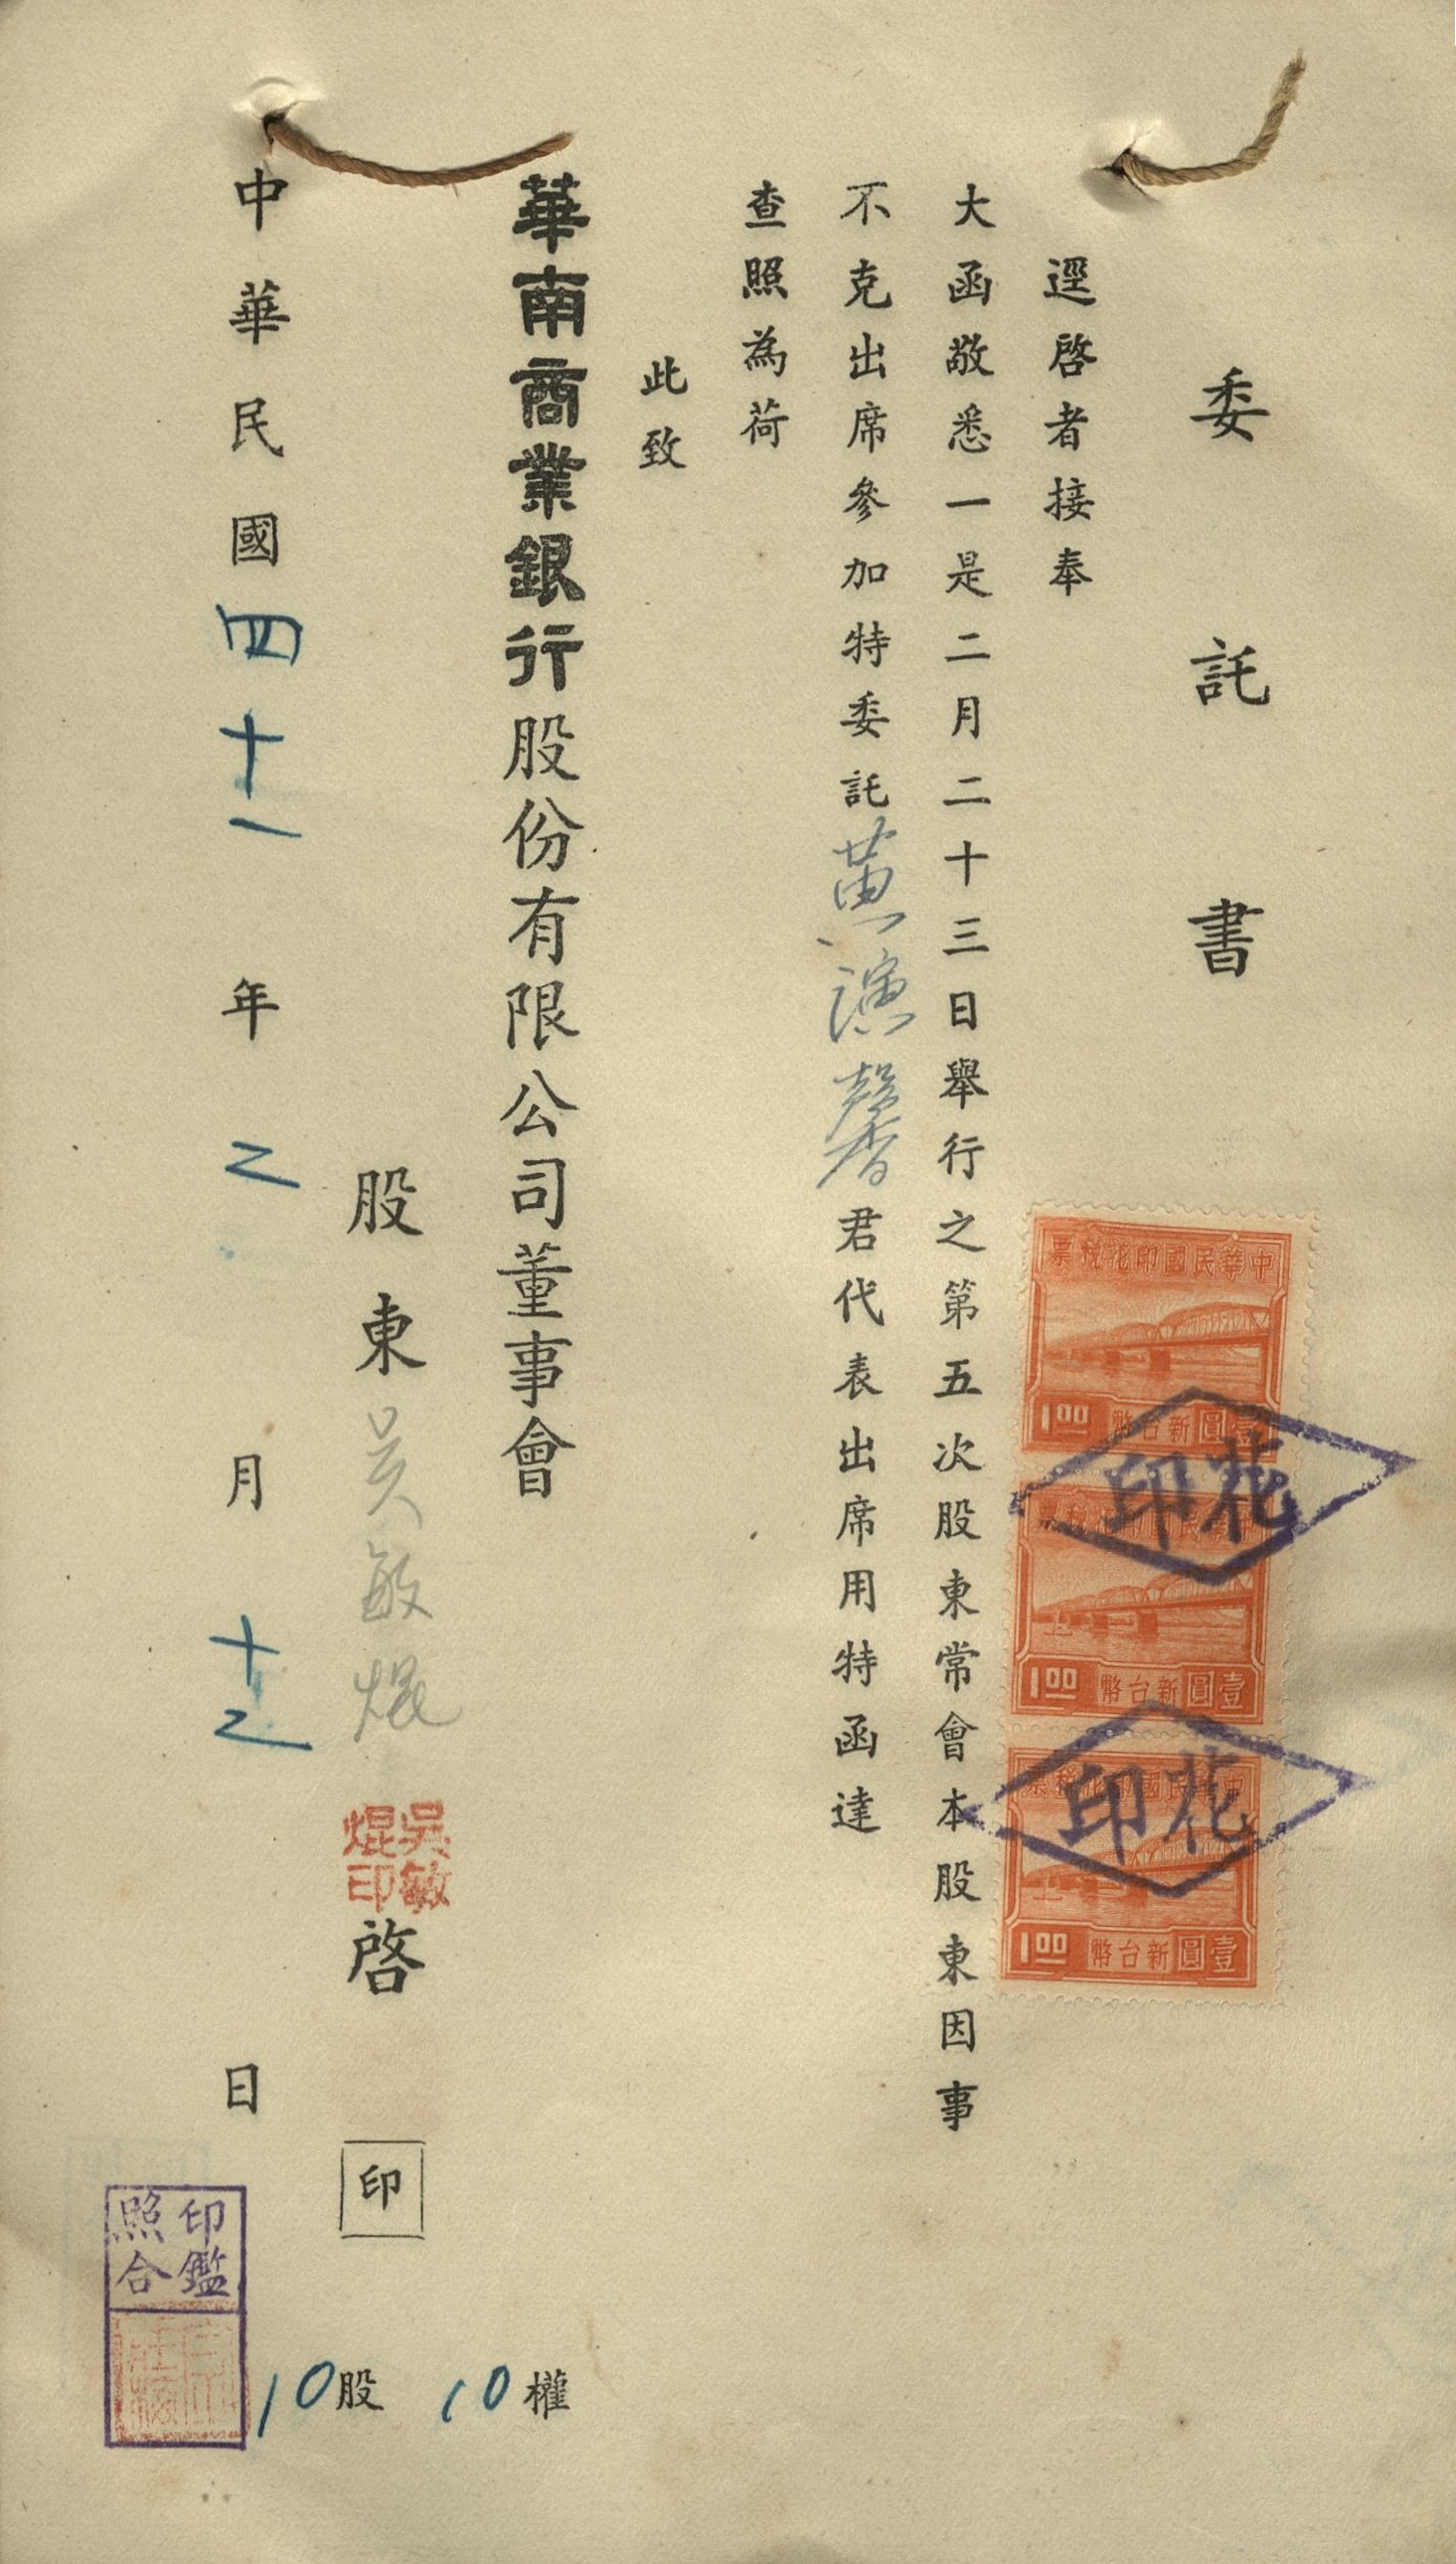 委託書
逕啓者接奉
大函敬悉一是二月二十三日舉行之第五次股東常會本股東因事
不克出席參加特委託黃演馨君代表出席用特函達
查照為荷
此致
華南商業銀行股份有限公司董事會
股東吳敏焜啓 印
吳敏焜印
中華民國四十一年二月十二日
10股 10權
印鑑照合
中華民國印花稅票
1.00 新台幣壹圓
花印
中華民國印花稅票
1.00 新台幣壹圓
花印
中華民國印花稅票
1.00 新台幣壹圓